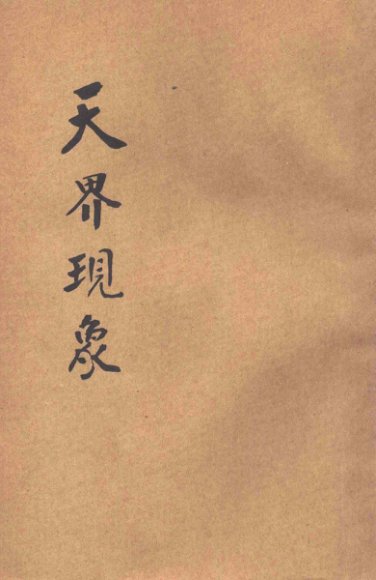 天界現象